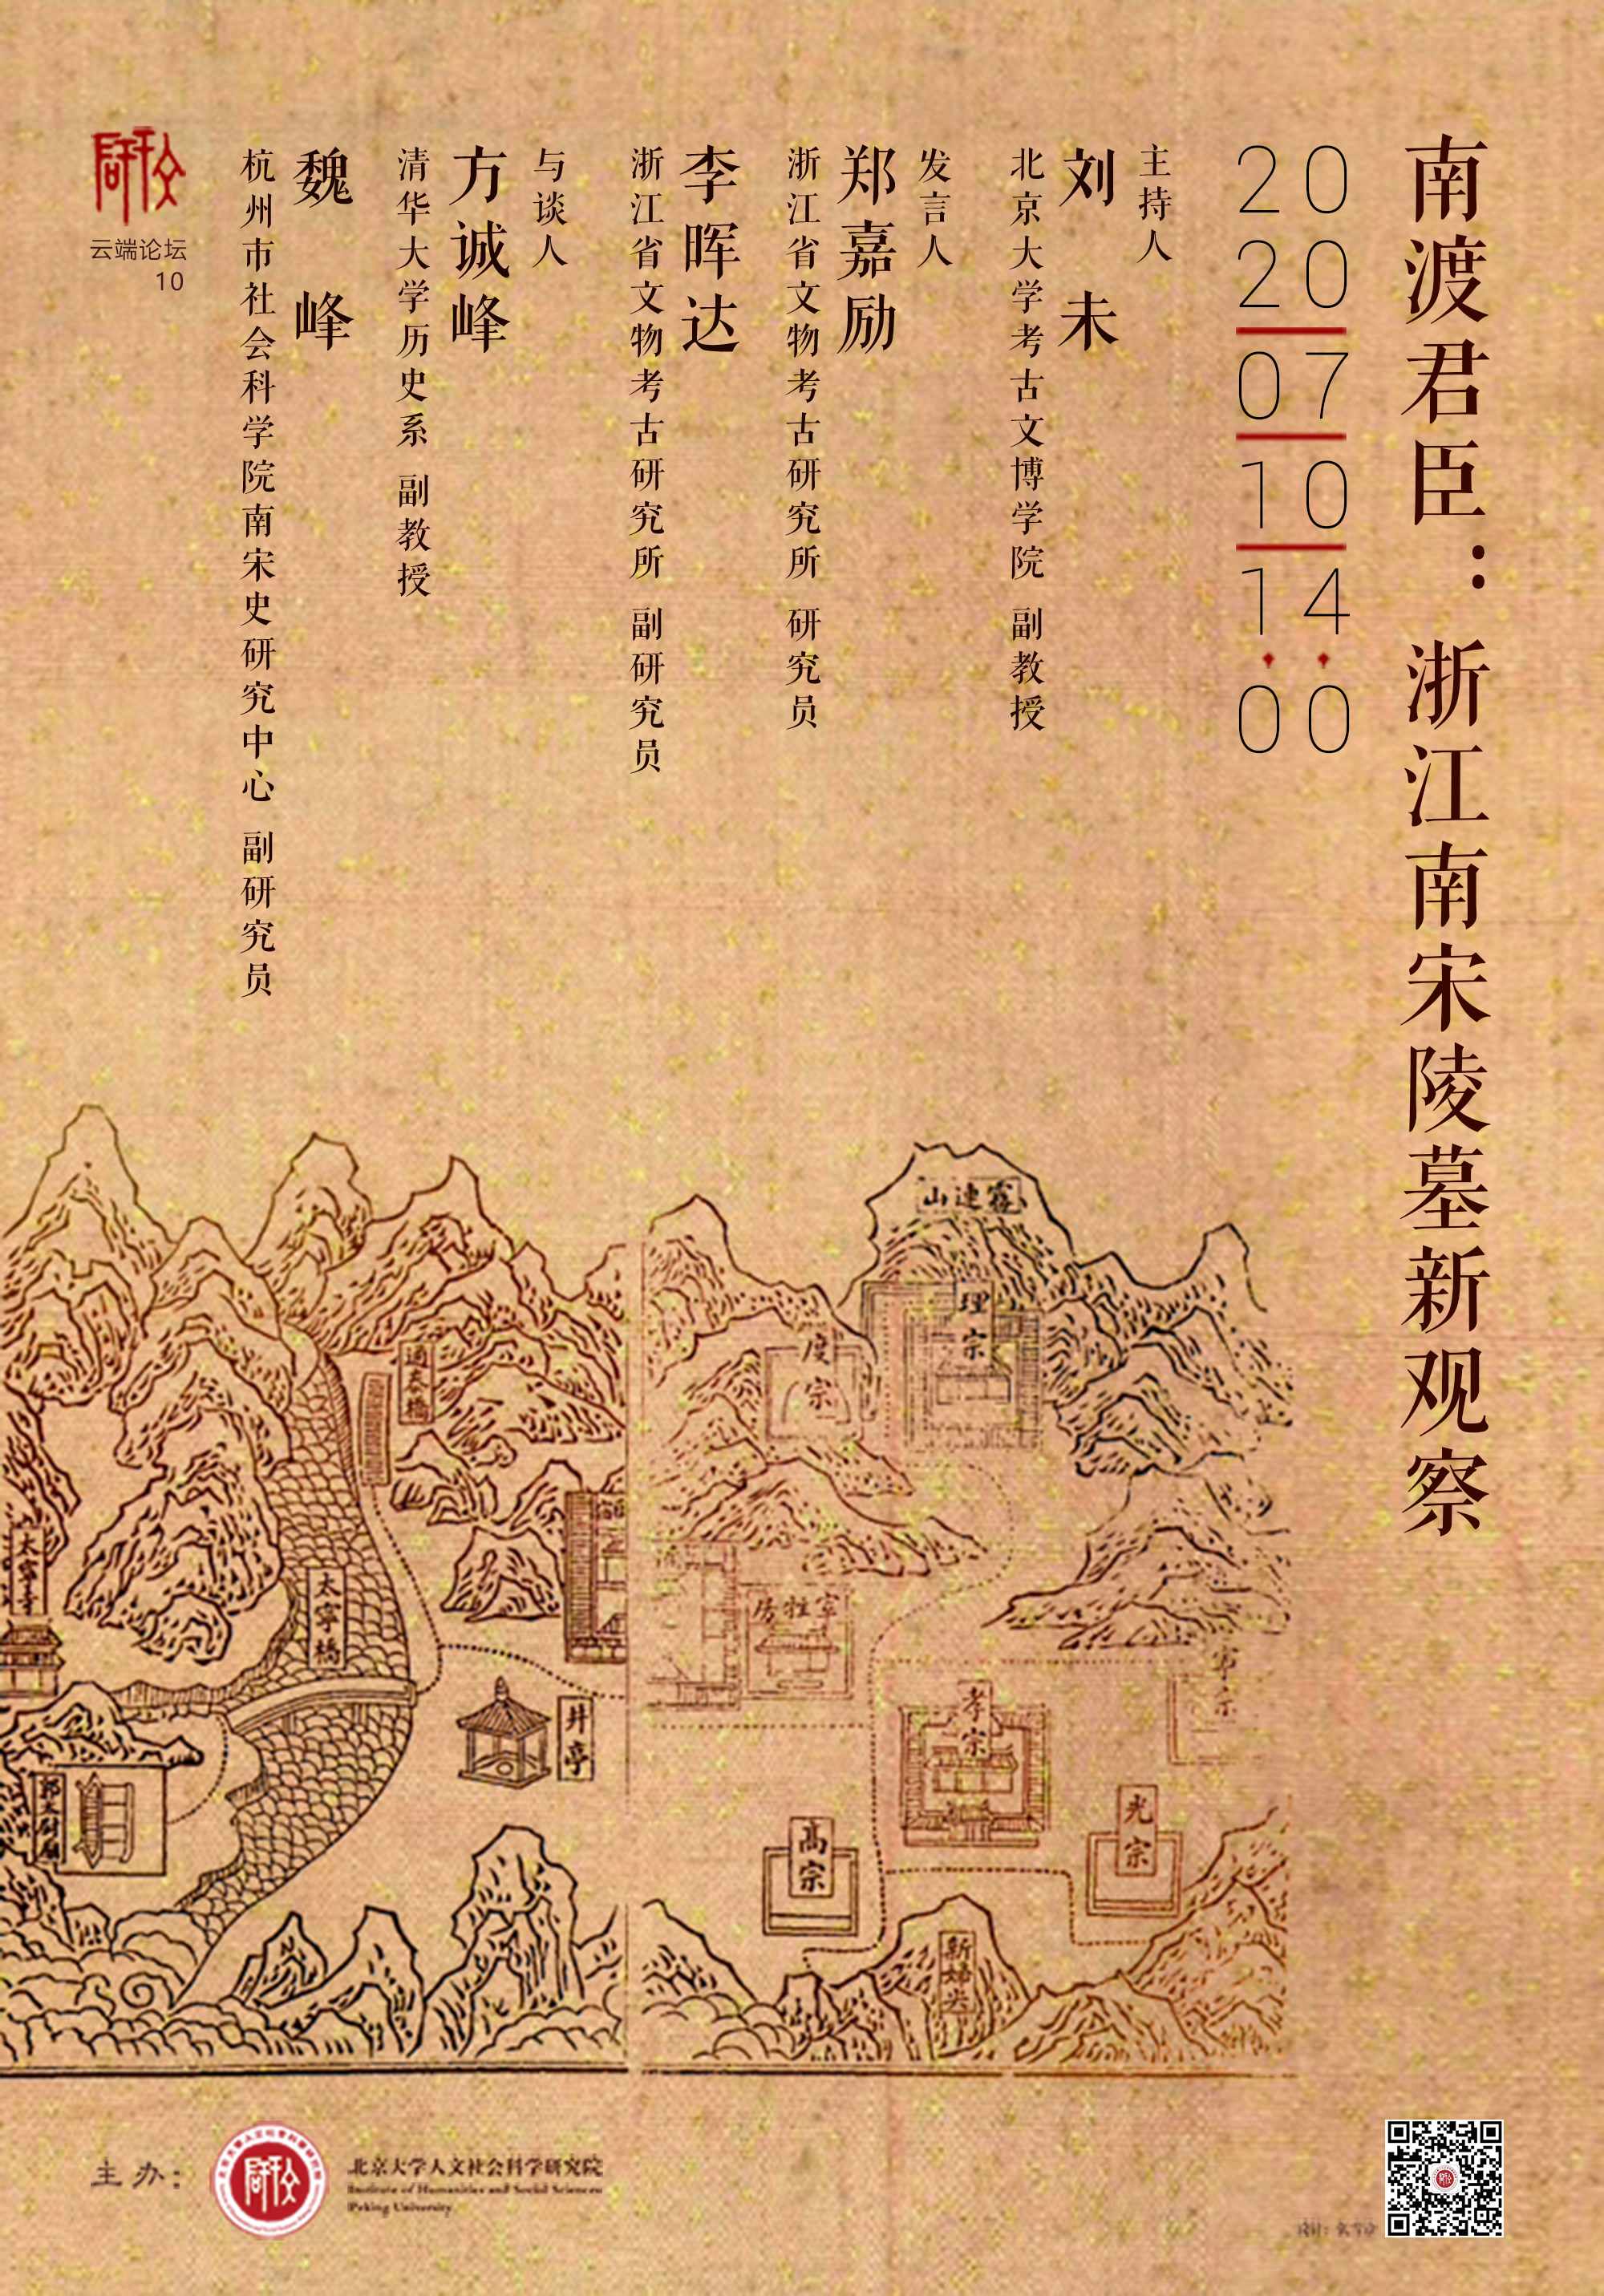 南渡君臣：浙江南宋陵墓新观察
2020
07
10
14:00
主持人
刘未
北京大学考古文博学院 副教授
发言人
郑嘉励
浙江省文物考古研究所 研究员
李晖达
浙江省文物考古研究所 副研究员
与谈人
方诚峰
清华大学历史系 副教授
魏峰
杭州市社会科学院南宋史研究中心 副研究员
云端论坛
10
山連霧
理宗
度宗
通泰橋
太寧寺
太寧橋
房牲宰
孝宗
井亭
光宗
高宗
新婦尖
主办：
北京大学人文社会科学研究院
Institute of Humanities and Social Sciences
Peking University